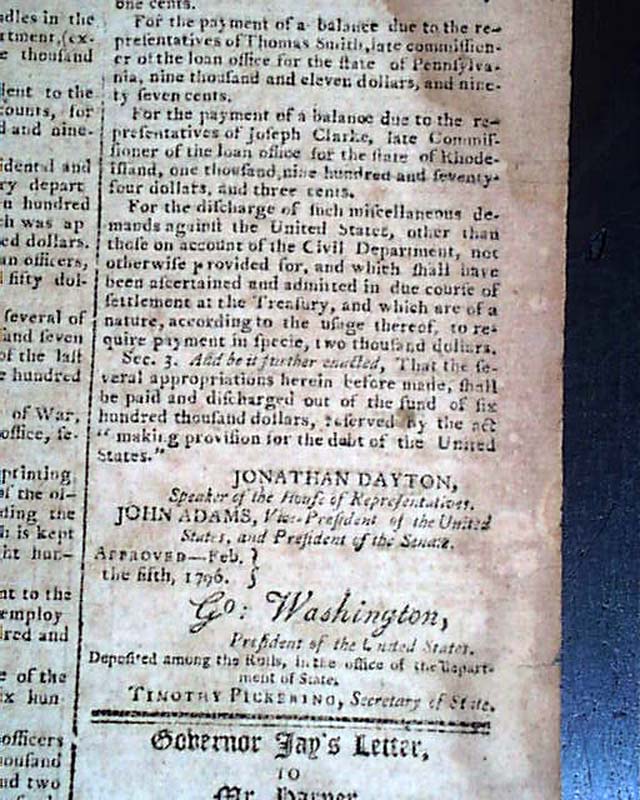 dles in the
rtment, (ex-
e thousand
lent to the
counts, for
d and nine-
idental and
ry depart
n hundred
ch was ap
ed dollars.
an officers,
fifty dol-
several of
and seven
of the last
e hundred
of War,
office, ſe-
printing
of the ol-
ding the
h is kept
ght hun-
nt to the
employ
red and
e of the
ix hun-
officers
ouſand
nd two
one cents.
For the payment of a balance due to the re-
preſentatives of Thomas Smith, late commiſſion-
er of the loan office for the ſtate of Pennſylva-
nia, nine thouſand and eleven dollars, and nine-
ty ſeven cents.
For the payment of a balance due to the re-
preſentatives of Joſeph Clarke, late Commiſ-
ſioner of the loan office for the ſtate of Rhode-
iſland, one thouſand, nine hundred and ſeventy-
four dollars, and three cents.
For the diſcharge of ſuch miſcellaneous de-
mands againſt the United States, other than
thoſe on account of the Civil Department, not
otherwiſe provided for, and which ſhall have
been aſcertained and admitted in due courſe of
ſettlement at the Treaſury, and which are of a
nature, according to the uſage thereof, to re-
quire payment in ſpecie, two thouſand dollars.
Sec. 3. And be it further enacted, That the ſe-
veral appropriations herein before made, ſhall
be paid and diſcharged out of the fund of ſix
hundred thouſand dollars, reſerved by the act
“ making proviſion for the debt of the United
States.”
JONATHAN DAYTON,
Speaker of the Houſe of Repreſentatives.
JOHN ADAMS, Vice-Preſident of the United
States, and Preſident of the Senate.
APPROVED—Feb. }
the fifth, 1796. }
Go: Washington,
Preſident of the United States.
Depoſited among the Rolls, in the office of the Depart-
ment of State.
TIMOTHY PICKERING, Secretary of State.
Governor Jay's Letter,
TO
Mr. Harper